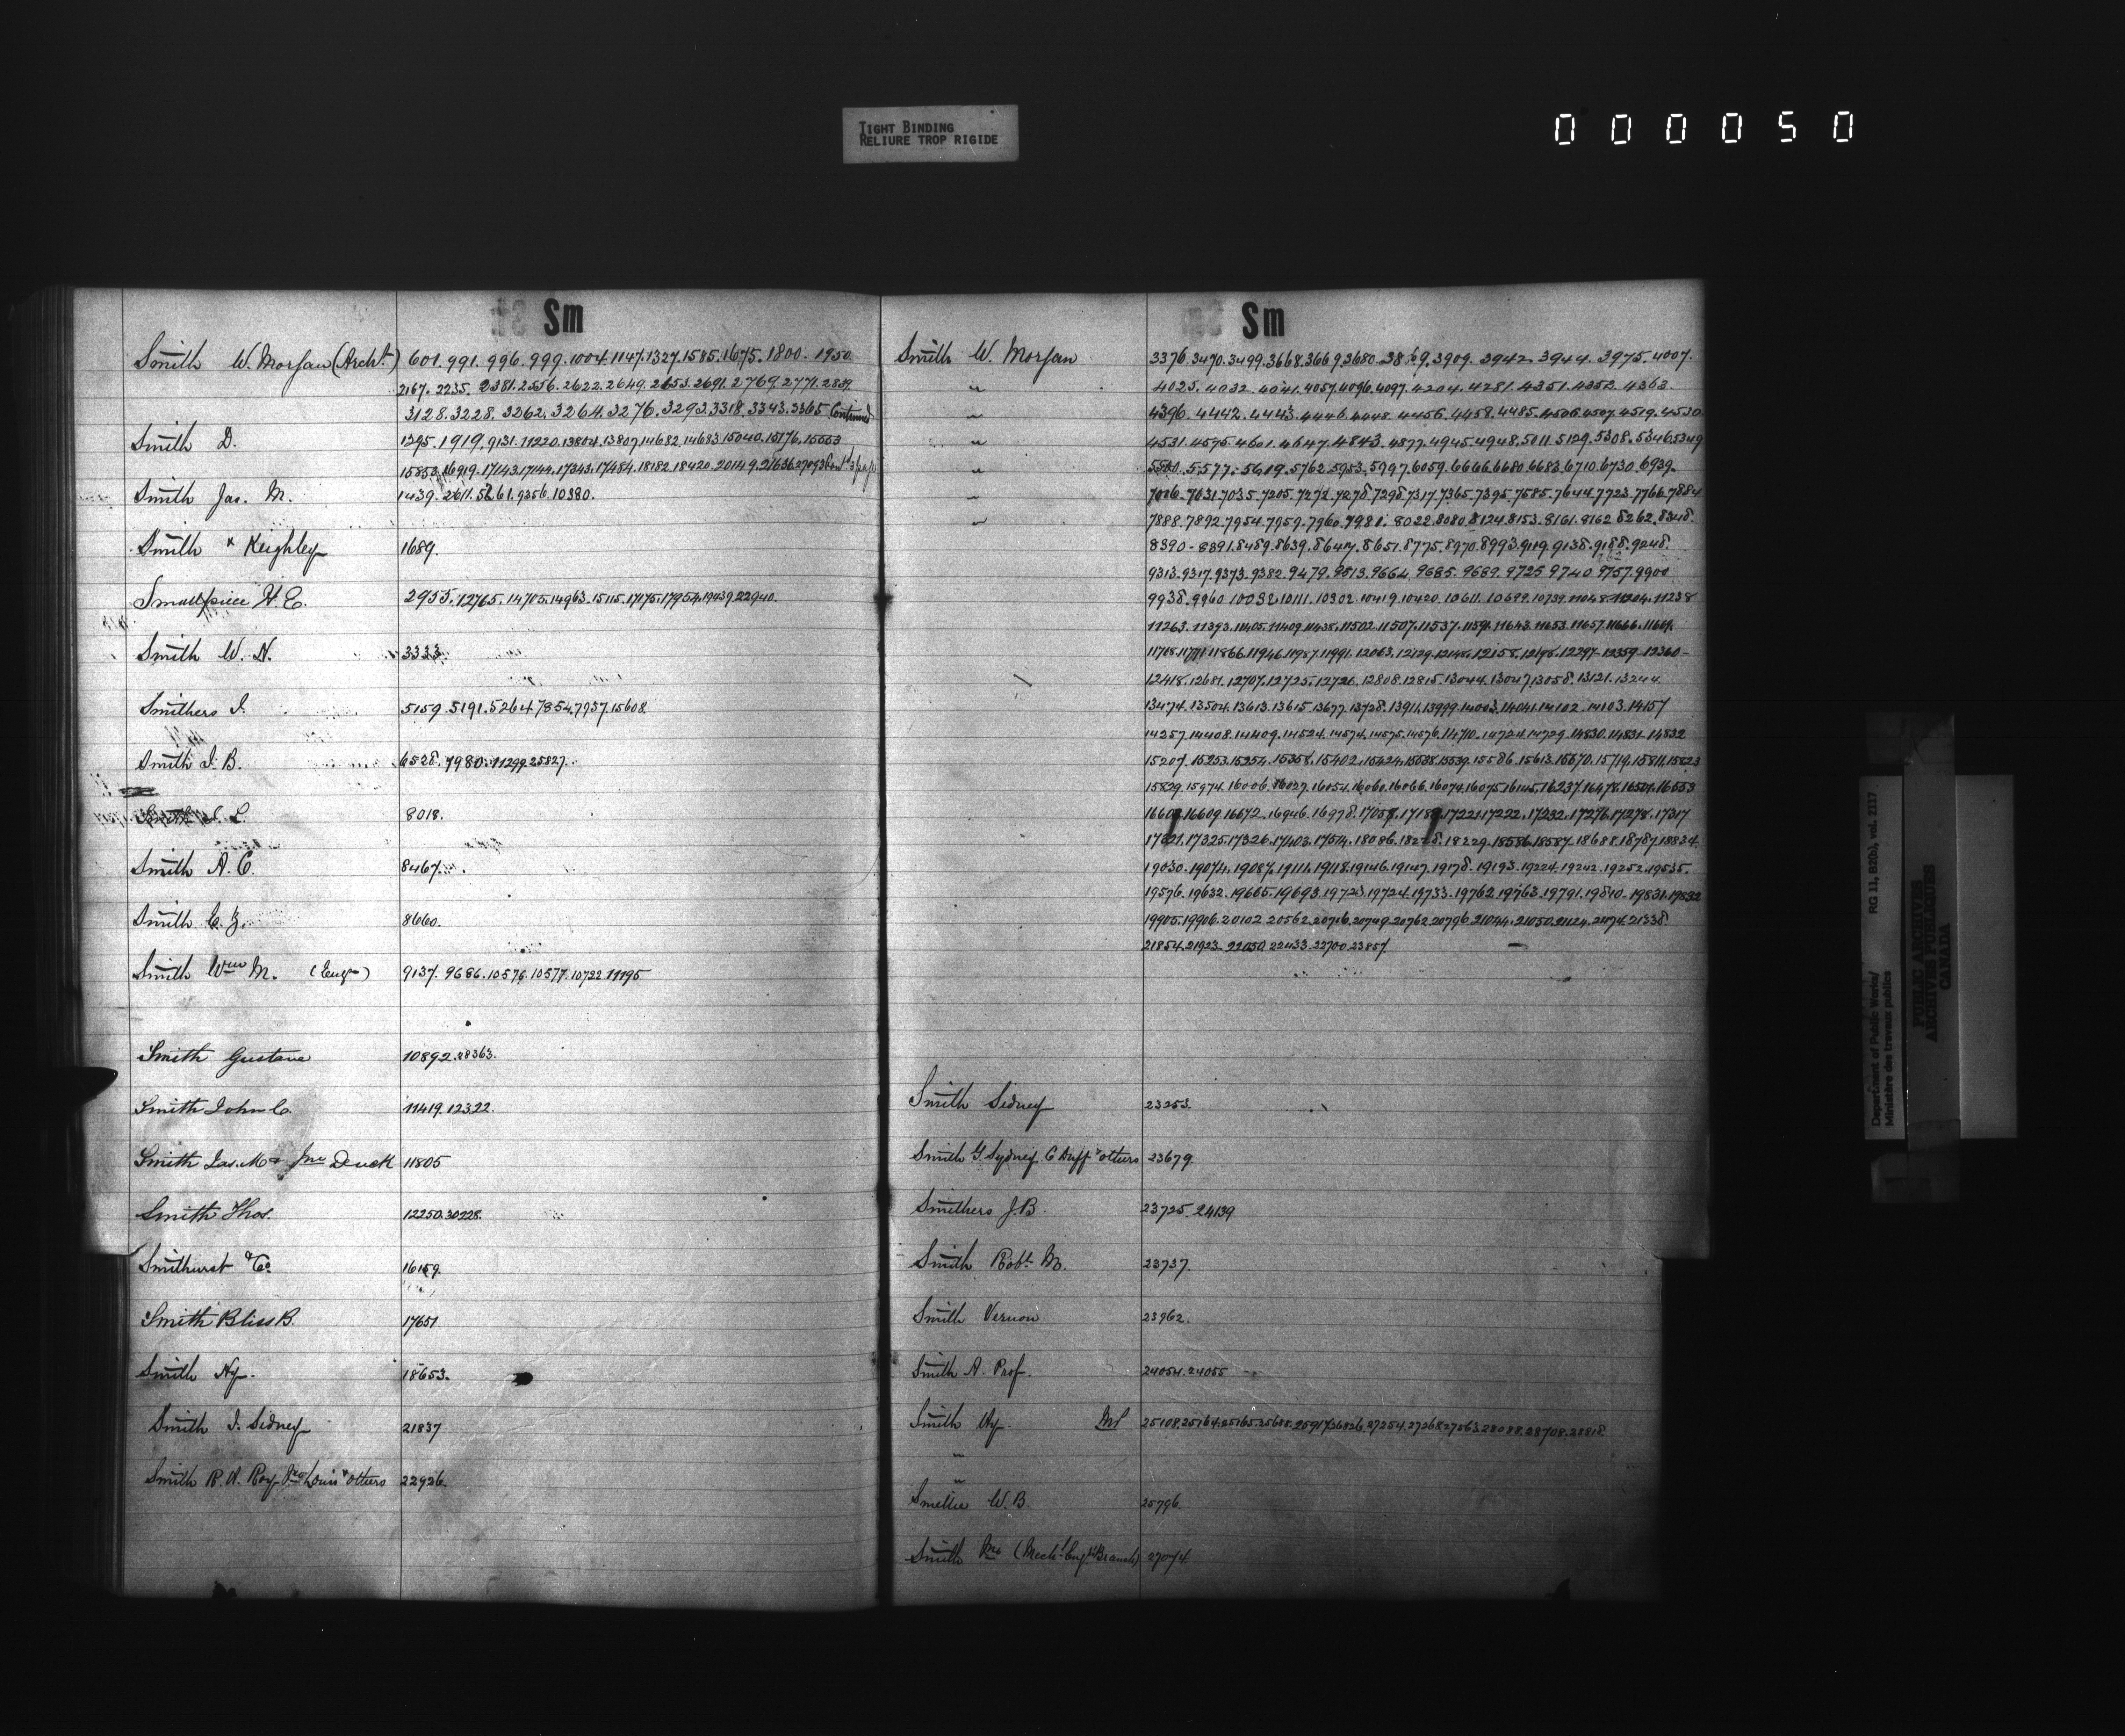 TIGHT BINDING
RELIURE TROP RIGIDE
000050
Sm
Smith W. Morsan (Archt.) 601. 991. 996. 999. 1004. 1147. 1327. 1585. 1675. 1800. 1950
2167. 2235. 2381. 2556. 2622. 2649. 2653. 2691. 2769. 2771. 2839
3128. 3228. 3262. 3264. 3276. 3293. 3318. 3343. 3365 Continued
Smith D. 1295. 1919. 9131. 11220. 13804. 13807. 14682. 14683. 15040. 15176. 15553
15853. 16919. 17143. 17144. 17343. 17484. 18182. 18420. 20149. 21636.
Smith Jas. M. 1439. 2611. 5261. 9356. 10380.
Smith & Keighley 1689.
Smallpiece H. E. 2955. 12765. 14705. 14963. 15115. 17175. 17954. 19439. 22940.
Smith W. N. 3333.
Smithers I. 5159. 5191. 5264. 7854. 7957. 15608.
Smith I. B. 6528. 7980. 11299. 25527.
L. 8018.
Smith A. C. 8467.
Smith C. 8660.
Smith Wm M. (Engr) 9137. 9686. 10576. 10577. 10722. 11195
Smith Gustave 10892. 28363.
Smith John C. 11419. 12322.
Smith Jas. M & Jno 11805
Smith Thos. 12250. 30228.
Smithurst & Co. 16159.
Smith Bliss B. 17651.
Smith Hy. 18653.
Smith I. Sidney 21837
Smith R. A. Roy Louis & others 22926.
Sm
Smith W. Morsan 3376. 3470. 3499. 3668. 3669. 3680. 3869. 3909. 3942. 3944. 3975. 4007.
" 4025. 4032. 4041. 4057. 4096. 4097. 4204. 4281. 4351. 4352. 4363.
" 4396. 4442. 4443. 4446. 4448. 4456. 4458. 4485. 4506. 4507. 4519. 4530
" 4531. 4575. 4601. 4647. 4843. 4877. 4945. 4948. 5011. 5129. 5308. 5346. 5349
" 5577. 5619. 5762. 5953. 5997. 6059. 6666. 6680. 6683. 6710. 6730. 6939.
" 7006. 7031. 7035. 7205. 7272. 7278. 7298. 7317. 7365. 7395. 7585. 7644. 7723. 7766. 7884
" 7888. 7892. 7954. 7959. 7960. 7981. 8022. 8080. 8124. 8153. 8161. 8162. 8262. 8348.
8390 - 8391. 8489. 8639. 8647. 8651. 8775. 8970. 8993. 9119. 9138. 9188. 9248.
9313. 9317. 9373. 9382. 9479. 9813. 9664. 9685. 9689. 9725. 9740. 9757. 9900
9938. 9960. 10032. 10111. 10302. 10419. 10420. 10611. 10699. 10739. 11048. 11204. 11238
11263. 11393. 11405. 11409. 11435. 11502. 11507. 11537. 11591. 11643. 11653. 11657. 11666. 11669.
11708. 11771. 11866. 11946. 11987. 11991. 12063. 12129. 12148. 12158. 12198. 12297 - 12359 - 12360 -
12418. 12681. 12707. 12725. 12726. 12808. 12815. 13044. 13047. 13058. 13121. 13244.
13474. 13504. 13613. 13615. 13677. 13728. 13911. 13999. 14003. 14041. 14102. 14103. 14157
14257. 14408. 14409. 14524. 14574. 14575. 14576. 14710. 14724. 14729. 14830. 14831. 14832
15207. 15253. 15254. 15358. 15402. 15424. 15538. 15539. 15586. 15613. 15670. 15719. 15811. 15823
15829. 15974. 16006. 16027. 16054. 16060. 16066. 16074. 16075. 16145. 16237. 16478. 16501. 16553
16609. 16672. 16946. 16978. 17221. 17222. 17232. 17276. 17278. 17317
17321. 17325. 17326. 17403. 17514. 18086. 18228. 18229. 18586. 18587. 18688. 18787. 18824.
19030. 19074. 19087. 19111. 19118. 19146. 19147. 19178. 19193. 19224. 19242. 19252. 19535.
19576. 19632. 19665. 19693. 19723. 19724. 19733. 19762. 19763. 19791. 19810. 19831. 19832
19905. 19906. 20102. 20562. 20716. 20749. 20762. 20796. 21044. 21050. 21124. 21174. 21338
21854. 21923. 22050. 22433. 22700. 23857
Smith Sidney 23253.
Smith G. Sydney. C Duff & others 23679.
Smithers J. B. 23725. 24139
Smith Robt. M. 23737.
Smith Vernon 23962.
Smith A. Prof. 24054. 24055
Smith Hy. 25108. 25164. 25165. 25688. 25917. 26826. 27254. 27268. 27563. 28088. 28708. 28818.
"
"
Smellie W. B. 25796.
Smith Mr (Mechl. Engrs Branch) 27074.
Department of Public Works/
Ministère des travaux publics
RG 11, B2(b), vol. 2117
PUBLIC ARCHIVES
ARCHIVES PUBLIQUES
CANADA